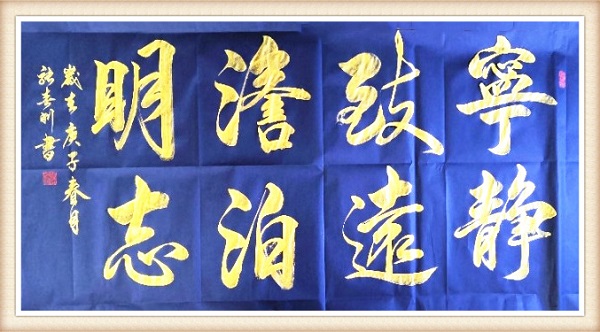 寧静
致遠
澹泊
明志
歲在庚子春月
書